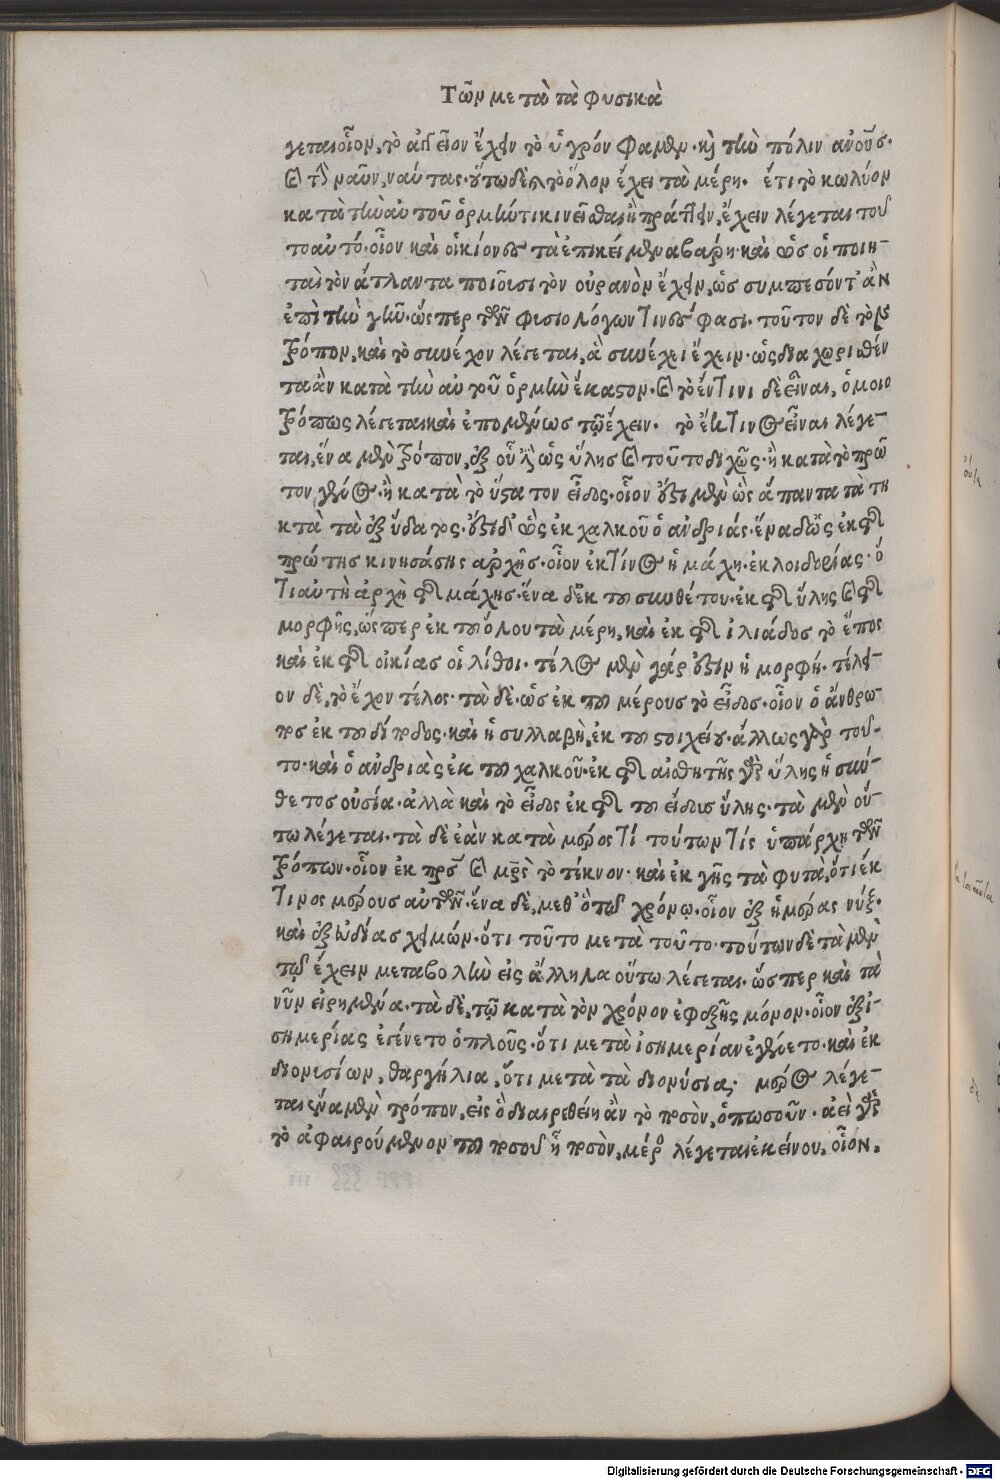 Τῶν μετὰ τὰ φυσικὰ
γεται οἷον, τὸ ἀγγεῖον ἔχειν τὸ ὑγρόν φαμεν· καὶ τὴν πόλιν ἀνοὺς·
καὶ τὴν ναῦν, ναύτας· οὕτω δὲ καὶ τὸ ὅλον ἔχει τὰ μέρη. ἔτι τὸ κωλύον
κατὰ τὴν αὑτοῦ ὁρμήν τι κινεῖσθαι ἢ πράττειν, ἔχειν λέγεται τοῦ
το αὐτό· οἷον καὶ οἱ κίονες τὰ ἐπικείμενα βάρη· καὶ ὡς οἱ ποιη-
ταὶ τὸν ἄτλαντα ποιοῦσι τὸν οὐρανὸν ἔχειν, ὡς συμπεσόντ' ἂν
ἐπὶ τὴν γῆν· ὥσπερ τῶν φυσιολόγων τινές φασι. τοῦτον δὲ τὸν
τρόπον, καὶ τὸ συνέχον λέγεται, ἃ συνέχει ἔχειν· ὡς διαχωρισθέν
τα ἂν κατὰ τὴν αὑτοῦ ὁρμὴν ἕκαστον. καὶ τὸ ἔν τινι δὲ εἶναι, ὁμοιο
τρόπως λέγεται καὶ ἑπομένως τῷ ἔχειν. τὸ ἔκ τινος εἶναι λέγε-
ται, ἕνα μὲν τρόπον, ἐξ οὗ ἐστὶν ὡς ὕλης καὶ τοῦτο διχῶς· ἢ κατὰ τὸ πρῶ
τον γένος· ἢ κατὰ τὸ ὕστατον εἶδος· οἷον ἔστι μὲν ὡς ἅπαντα τὰ τη
κτὰ τὰ ἐξ ὕδατος· ἔστι δ' ὡς ἐκ χαλκοῦ ὁ ἀνδριάς· ἕνα δ' ὡς ἐκ τῆς
πρώτης κινησάσης ἀρχῆς· οἷον ἐκ τίνος ἡ μάχη· ἐκ λοιδορίας· ὅ
τι αὐτὴ ἀρχὴ τῆς μάχης· ἕνα δ' ἐκ τοῦ συνθέτου· ἐκ τῆς ὕλης καὶ τῆς
μορφῆς, ὥσπερ ἐκ τοῦ ὅλου τὰ μέρη, καὶ ἐκ τῆς ἰλιάδος τὸ ἔπος
καὶ ἐκ τῆς οἰκίας οἱ λίθοι. τέλος μὲν γάρ ἐστιν ἡ μορφή. τέλει-
ον δὲ, τὸ ἔχον τέλος· τὰ δὲ, ὡς ἐκ τοῦ μέρους τὸ εἶδος· οἷον ὁ ἄνθρω-
πος ἐκ τοῦ δίποδος· καὶ ἡ συλλαβὴ, ἐκ τοῦ στοιχείου· ἄλλως γὰρ τοῦ-
το· καὶ ὁ ἀνδριὰς ἐκ τοῦ χαλκοῦ· ἐκ τῆς αἰσθητῆς γὰρ ὕλης ἡ σύν-
θετος οὐσία· ἀλλὰ καὶ τὸ εἶδος ἐκ τῆς τοῦ εἴδους ὕλης· τὰ μὲν οὕ-
τω λέγεται· τὰ δὲ ἐὰν κατὰ μέρος τί τούτων τὶς ὑπάρχῃ τῶν
τρόπων· οἷον ἐκ πατρὸς καὶ μητρὸς τὸ τέκνον· καὶ ἐκ γῆς τὰ φυτὰ, ὅτι ἔκ
τινος μέρους αὐτῶν. ἕνα δὲ, μεθ' ὃ τῷ χρόνῳ· οἷον ἐξ ἡμέρας νύξ·
καὶ ἐξ εὐδίας χειμών· ὅτι τοῦτο μετὰ τοῦτο· τούτων δὲ τὰ μὲν
τῷ ἔχειν μεταβολὴν εἰς ἄλληλα οὕτω λέγεται· ὥσπερ καὶ τὰ
νῦν εἰρημένα· τὰ δὲ, τῷ κατὰ τὸν χρόνον ἐφεξῆς μόνον· οἷον ἐξ ἰ-
σημερίας ἐγένετο ὁ πλοῦς· ὅτι μετὰ ἰσημερίαν ἐγένετο· καὶ ἐκ
διονυσίων, θαργήλια, ὅτι μετὰ τὰ διονύσια. μέρος λέγε-
ται ἕνα μὲν τρόπον, εἰς ὃ διαιρεθείη ἂν τὸ ποσὸν, ὁπωσοῦν. ἀεὶ γὰρ
τὸ ἀφαιρούμενον τοῦ ποσοῦ ᾗ ποσὸν, μέρος λέγεται ἐκείνου. οἷον,
Digitalisierung gefördert durch die Deutsche Forschungsgemeinschaft - DFG